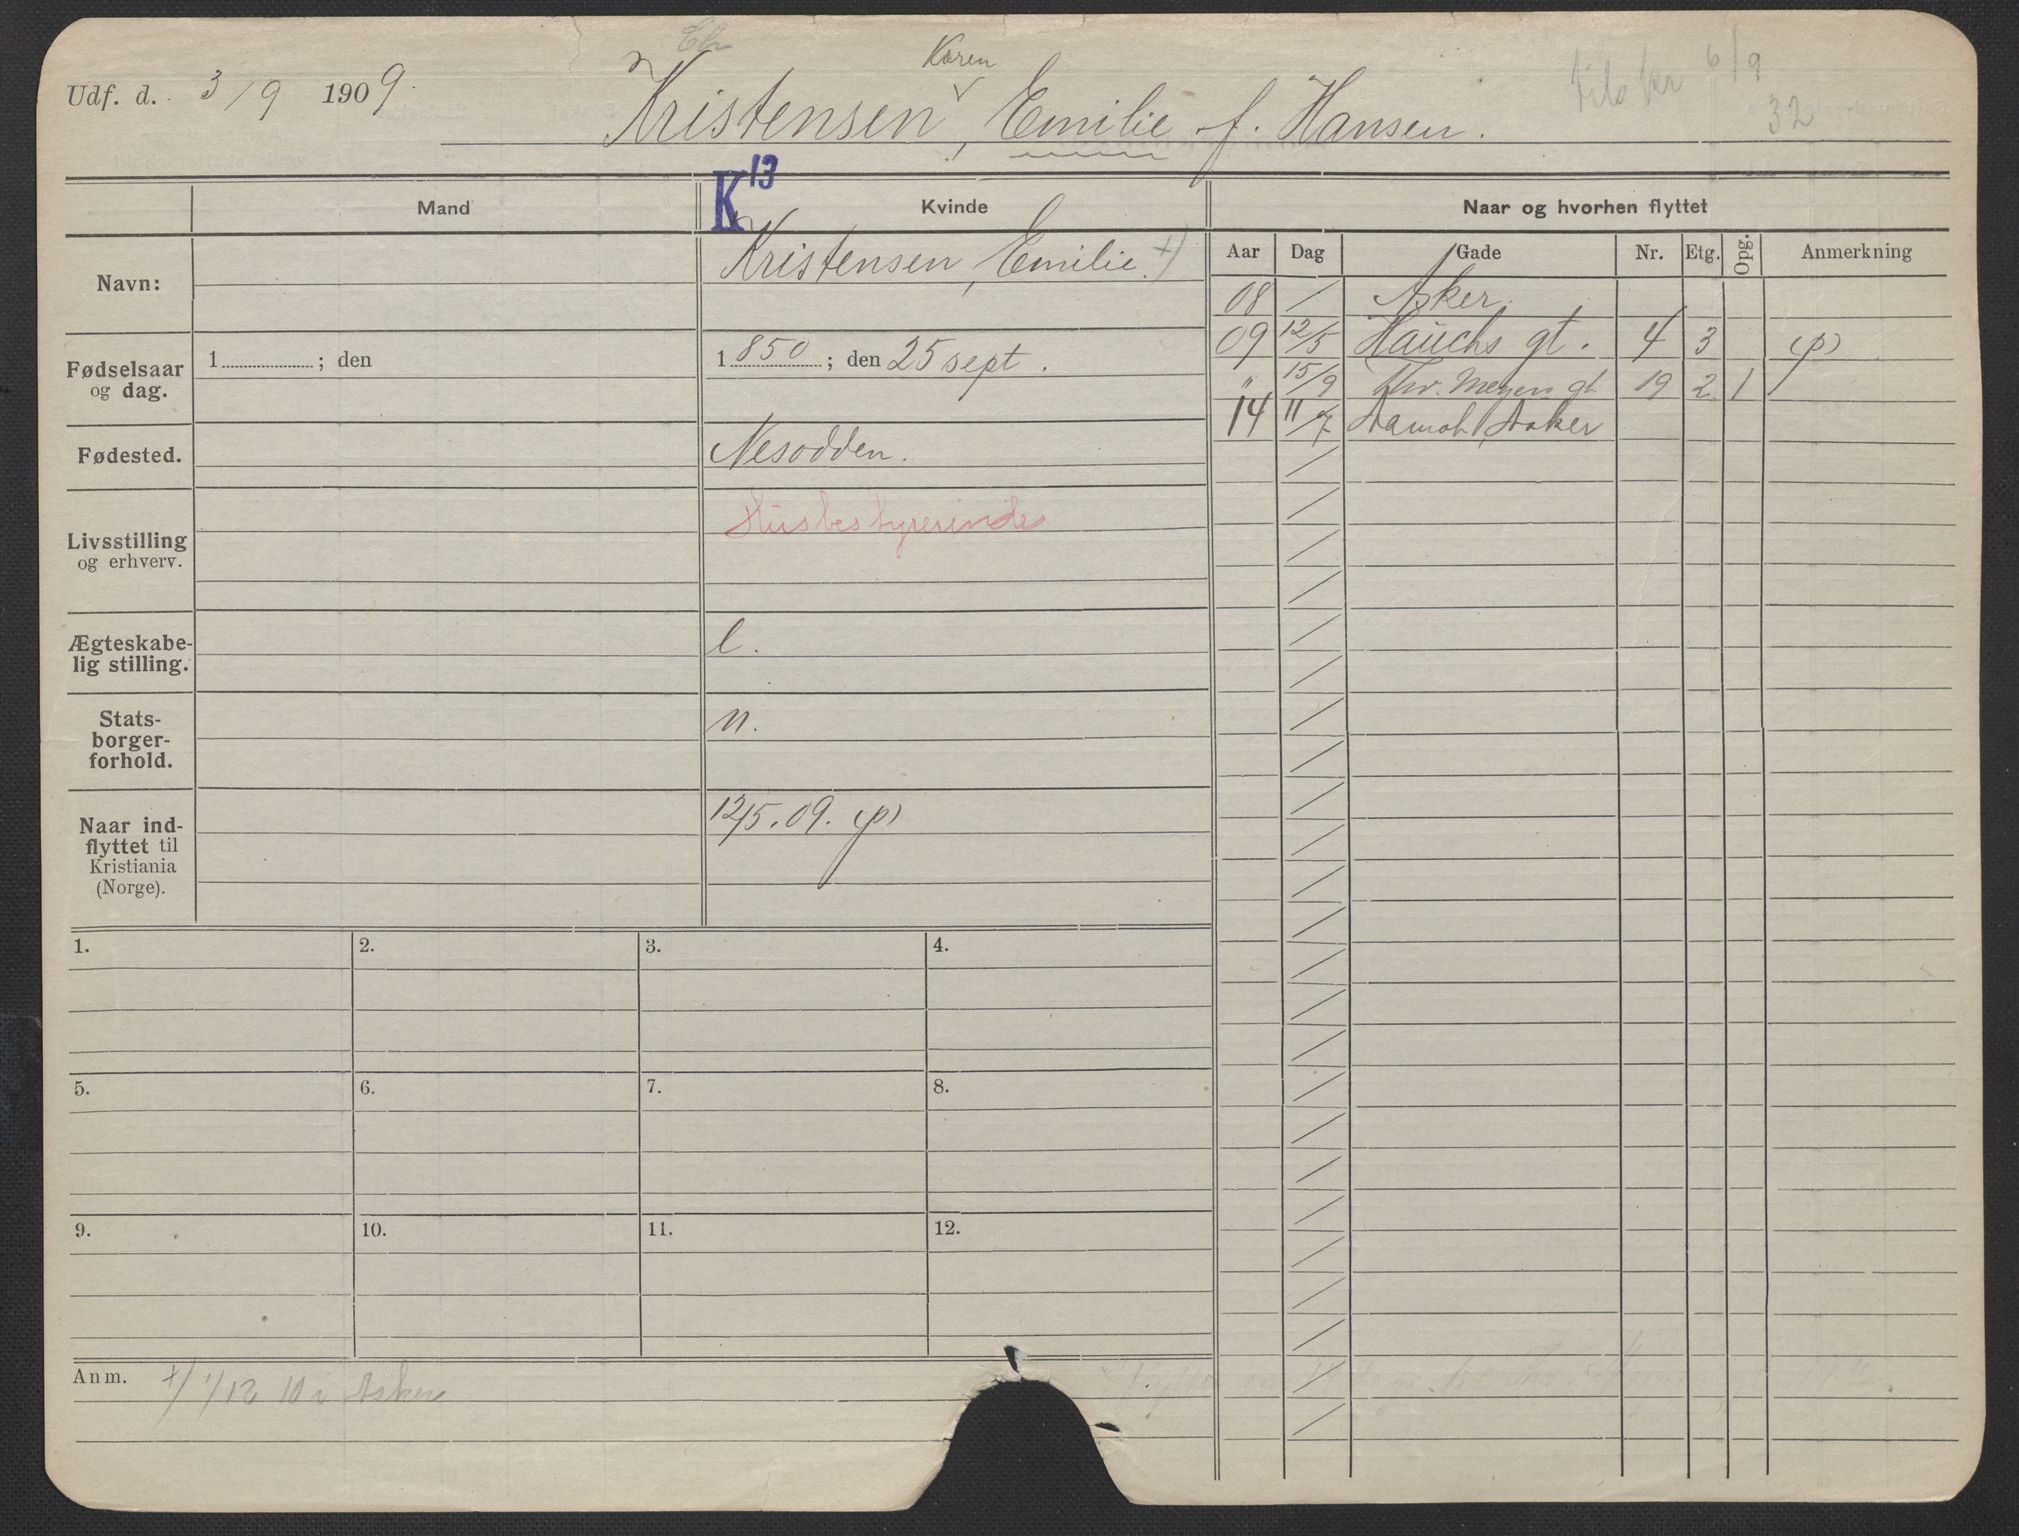 Udf. d. 3/9 1909.
Karen
Kristensen, Emilie f. Hansen.
6/9
32
K 13
Mand
Kvinde
Naar og hvorhen flyttet
Navn:
Kristensen, Emilie. +)
Aar Dag Gade Nr. Etg. Opg. Anmerkning
08 / Asker
09 12/5 Hauchs gt. 4 3 (p)
" 15/9 Thv. Meyers gt. 19 2 1
14 11/7 Asker
Fødselsaar og dag.
1 ; den
1850 ; den 25 sept.
Fødested.
Nesodden.
Livsstilling og erhverv.
Husbestyrerinde
Ægteskabe-
lig stilling.
e.
Stats-
borger-
forhold.
n.
Naar ind-
flyttet til
Kristiania
(Norge).
12/5.09. (p)
1. 2. 3. 4.
5. 6. 7. 8.
9. 10. 11. 12.
Anm. +) 1/12 10 i Asker